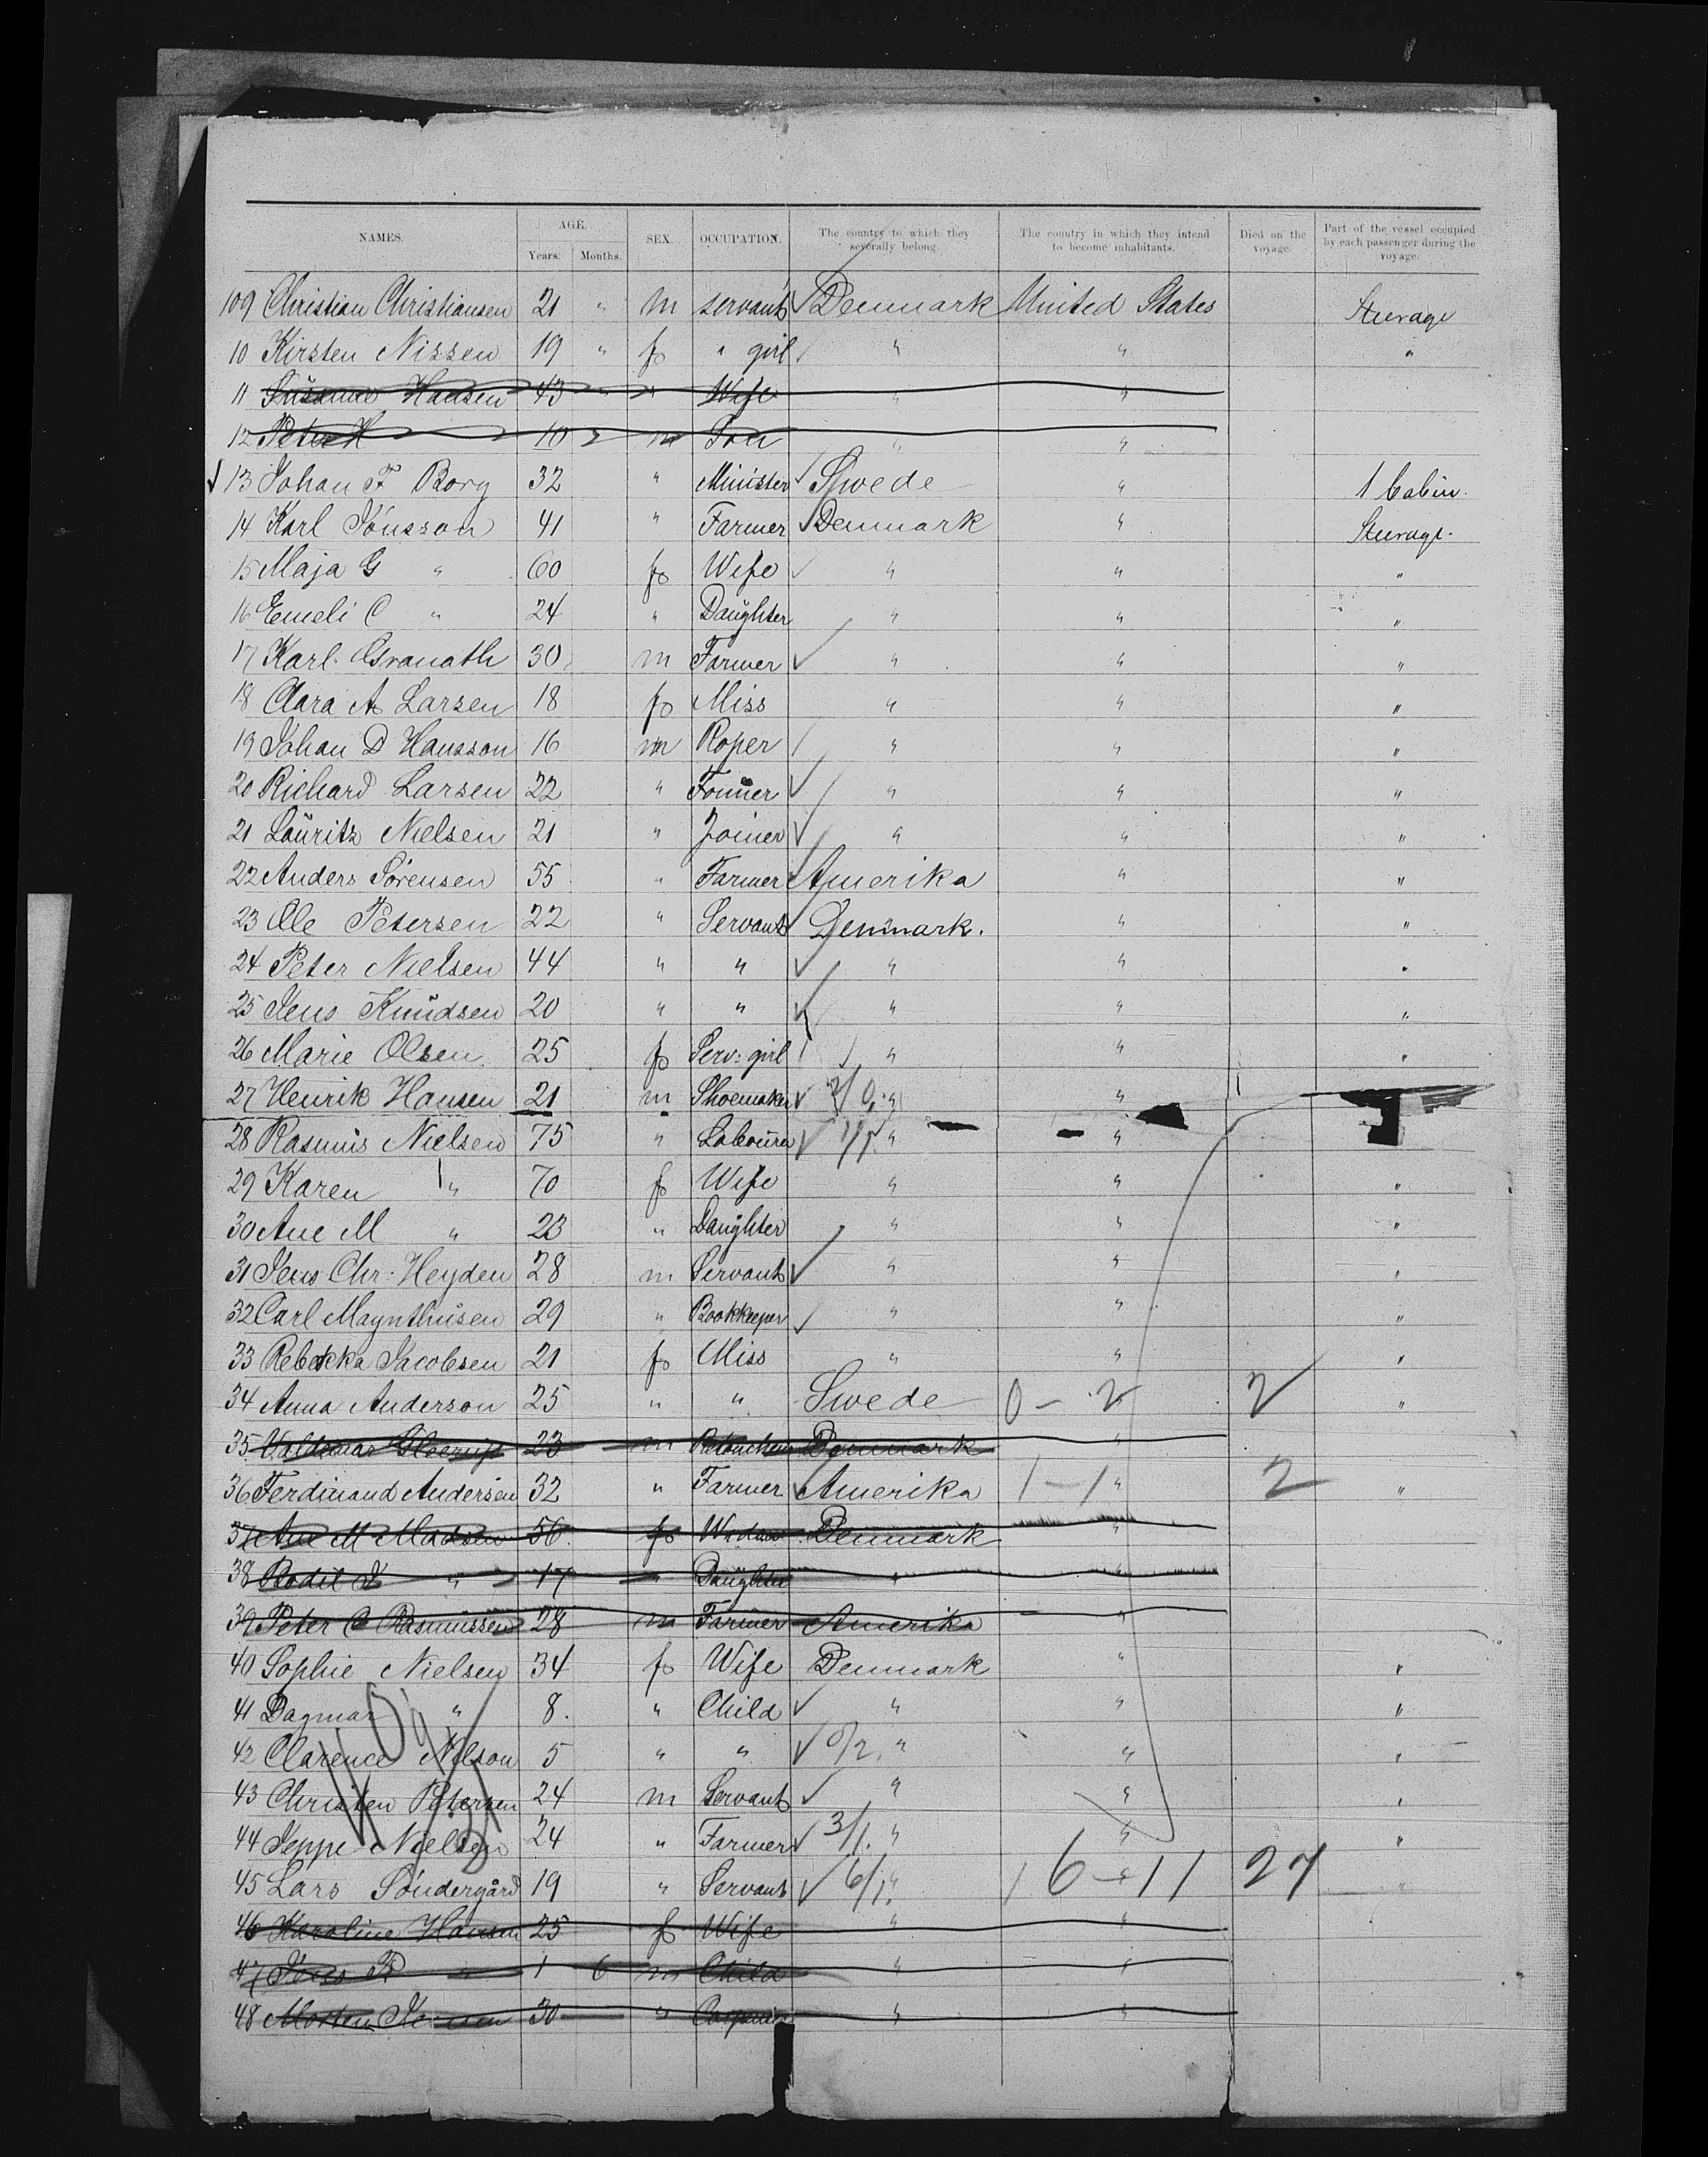 NAMES. AGE. Years. Months. SEX. OCCUPATION. The country to which they severally belong. The country in which they intend to become inhabitants. Died on the voyage. Part of the vessel occupied by each passenger during the voyage.
109 Christian Christiansen 21 " m servant Denmark United States Steerage
10 Kirsten Nissen 19 " f " girl " " "
11 Susanne Hansen 43 " " Wife " "
12 Peter H 10 " m Son " "
13 Johan F Borg 32 " Minister Swede " 1 Cabin.
14 Karl Jönsson 41 " Farmer Denmark " Steerage.
15 Maja G " 60 f Wife " " "
16 Emeli C " 24 " Daughter " " "
17 Karl Granath 30 m Farmer " " "
18 Clara A Larsen 18 f Miss " " "
19 Johan D Hansson 16 m Roper " " "
20 Richard Larsen 22 " " " "
21 Lauritz Nielsen 21 " Joiner " " "
22 Anders Sörensen 55 " Farmer Amerika " "
23 Ole Petersen 22 " Servant Denmark. " "
24 Peter Nielsen 44 " " " " "
25 Jens Knudsen 20 " " " " "
26 Marie Olsen 25 f Serv: girl " " "
27 Henrik Hansen 21 m Shoemaker 2/0. " "
28 Rasmus Nielsen 75 " Labourer 1/1. " " "
29 Karen " 70 f Wife " " "
30 Ane M " 23 " Daughter " " "
31 Jens Chr: Heyden 28 m Servant " " "
32 Carl Maynthusen 29 " Bookkeeper " " "
33 Rebekka Jacobsen 21 f Miss " " "
34 Anna Anderson 25 " " Swede 0 - 2 2 "
35 Valdemar 23 m Denmark "
36 Ferdinand Andersen 32 " Farmer Amerika 1 - 1 " 2 "
37 Ane M Madsen 56 f Widow Denmark "
38 Bodil " 17 " Daughter " "
39 Peter C Rasmussen 28 m Farmer Amerika "
40 Sophie Nielsen 34 f Wife Denmark " "
41 Dagmar " 8. " Child " " "
42 Clarence Nelson 5 " " 0/2. " " "
43 Christen Petersen 24 m Servant " " "
44 Jeppe Nielsen 24 " Farmer 3/1. " " "
45 Lars Söndergård 19 " Servant 6/1. " 16 - 11 27 "
46 Karoline Hansen 25 f Wife " "
47 Jens " 1 6 m Child " "
48 Morten Jensen 30 " " "